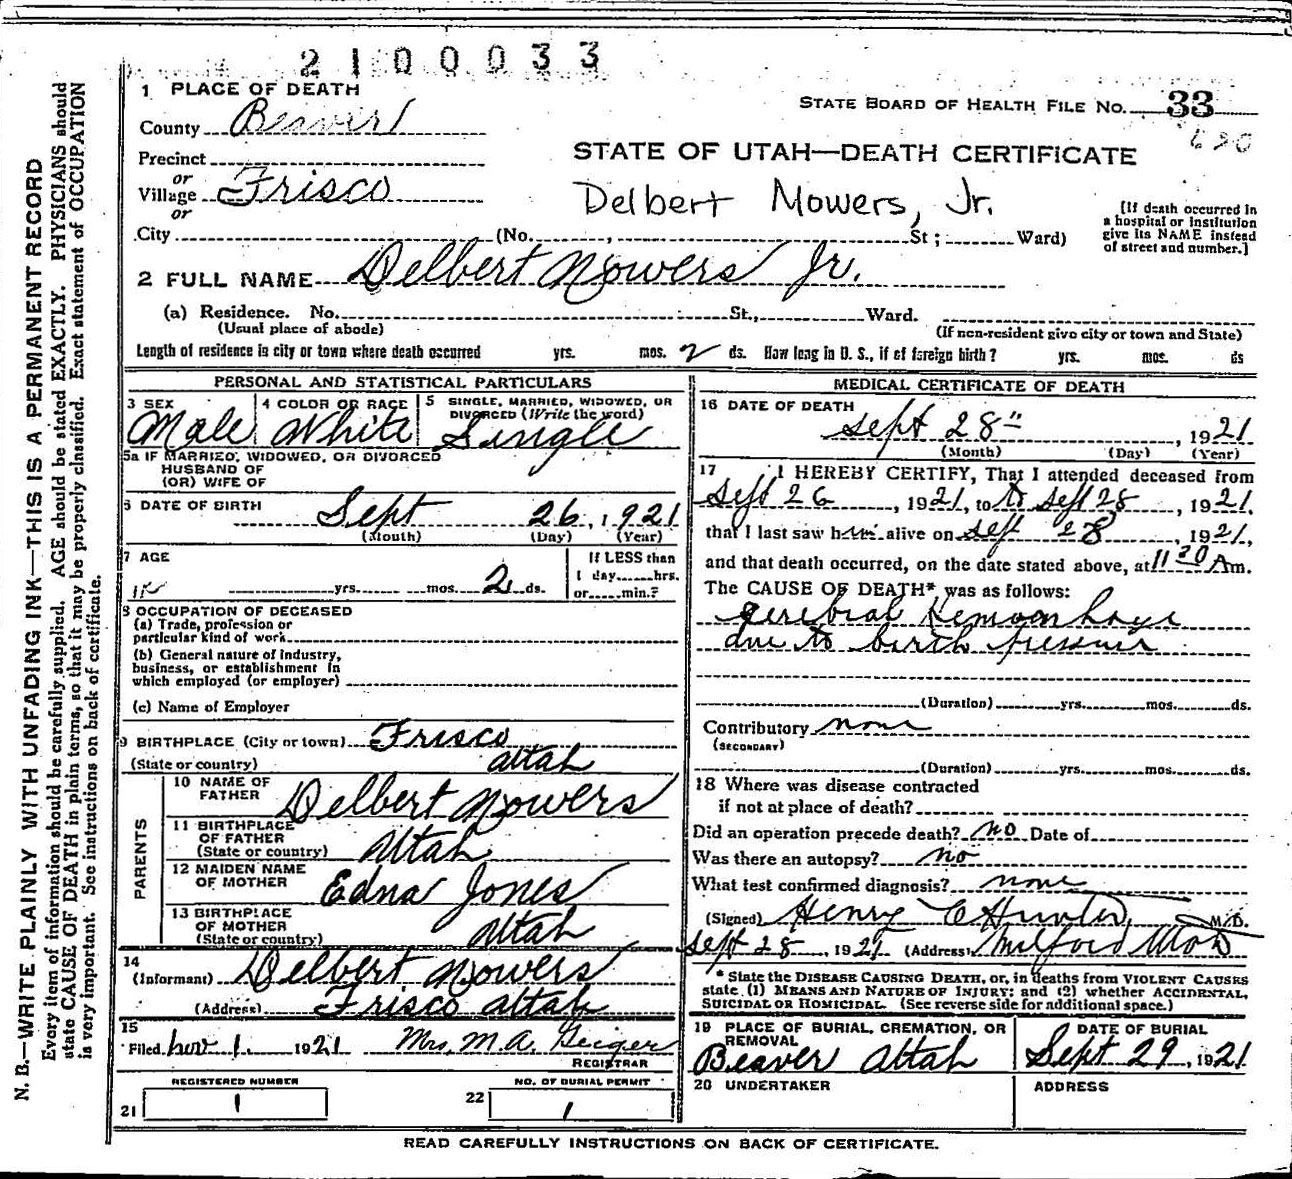 2100033
1 PLACE OF DEATH
STATE BOARD OF HEALTH FILE NO. 33
County Beaver
620
Precinct
STATE OF UTAH—DEATH CERTIFICATE
or
Village Frisco
Delbert Mowers, Jr.
or
[If death occurred in
a hospital or institution
give its NAME instead
of street and number.]
City (No. , St ; Ward)
2 FULL NAME Delbert Mowers Jr.
(a) Residence. No. St., Ward.
(Usual place of abode) (If non-resident give city or town and State)
Length of residence in city or town where death occurred yrs. mos. 2 ds. How long in U. S., if of foreign birth? yrs. mos. ds
PERSONAL AND STATISTICAL PARTICULARS
3 SEX Male
4 COLOR OR RACE White
5 SINGLE, MARRIED, WIDOWED, OR
DIVORCED (Write the word)
Single
5a IF MARRIED, WIDOWED, OR DIVORCED
HUSBAND OF
(OR) WIFE OF
6 DATE OF BIRTH Sept 26, 1921
(Month) (Day) (Year)
7 AGE
yrs. mos. 2 ds.
If LESS than
1 day hrs.
or min.?
8 OCCUPATION OF DECEASED
(a) Trade, profession or
particular kind of work
(b) General nature of industry,
business, or establishment in
which employed (or employer)
(c) Name of Employer
9 BIRTHPLACE (City or town) Frisco
(State or country) Utah
PARENTS
10 NAME OF
FATHER Delbert Mowers
11 BIRTHPLACE
OF FATHER
(State or country) Utah
12 MAIDEN NAME
OF MOTHER Edna Jones
13 BIRTHPLACE
OF MOTHER
(State or country) Utah
14
(Informant) Delbert Mowers
(Address) Frisco Utah
15
Filed Nov 1. 1921 Mrs. M.A. Geiger
REGISTRAR
REGISTERED NUMBER
21 1
NO. OF BURIAL PERMIT
22 1
MEDICAL CERTIFICATE OF DEATH
16 DATE OF DEATH
Sept 28", 1921
(Month) (Day) (Year)
17 I HEREBY CERTIFY, That I attended deceased from
Sept 26, 1921, to to Sept 28, 1921,
that I last saw him alive on Sept 28, 1921,
and that death occurred, on the date stated above, at 11 30 Am.
The CAUSE OF DEATH* was as follows:
Cerebral Hemorrhage
due to birth pressure
(Duration) yrs. mos. ds.
Contributory none
(SECONDARY)
(Duration) yrs. mos. ds.
18 Where was disease contracted
if not at place of death?
Did an operation precede death? no Date of
Was there an autopsy? no
What test confirmed diagnosis? none
(Signed) Henry C Hunter, M.D.
Sept 28, 1921 (Address) Milford Utah
* State the DISEASE CAUSING DEATH, or, in deaths from VIOLENT CAUSES
state (1) MEANS AND NATURE OF INJURY; and (2) whether ACCIDENTAL,
SUICIDAL OR HOMICIDAL. (See reverse side for additional space.)
19 PLACE OF BURIAL, CREMATION, OR
REMOVAL
Beaver Utah
DATE OF BURIAL
Sept 29, 1921
20 UNDERTAKER
ADDRESS
READ CAREFULLY INSTRUCTIONS ON BACK OF CERTIFICATE.
N. B.—WRITE PLAINLY WITH UNFADING INK—THIS IS A PERMANENT RECORD
Every item of information should be carefully supplied. AGE should be stated EXACTLY. PHYSICIANS should
state CAUSE OF DEATH in plain terms, so that it may be properly classified. Exact statement of OCCUPATION
is very important. See instructions on back of certificate.